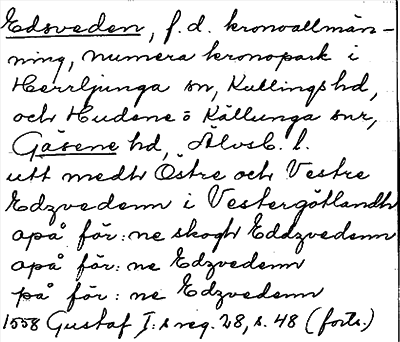 Edsveden, f.d. kronoallmän-
ning, numera kronopark i
Herrljunga sn, Kullings hd,
och Hudene o Källunga snr,
Gäsene hd, Älvsb. l.
utt medh Östre och Vestre
Edzvedenn i Vestergötlandh
apå för:ne skogh Eddzvedenn
apå för:ne Edzvedenn
på för:ne Edzvedenn
1558 Gustaf I:s reg. 28, s. 48 (forts.)